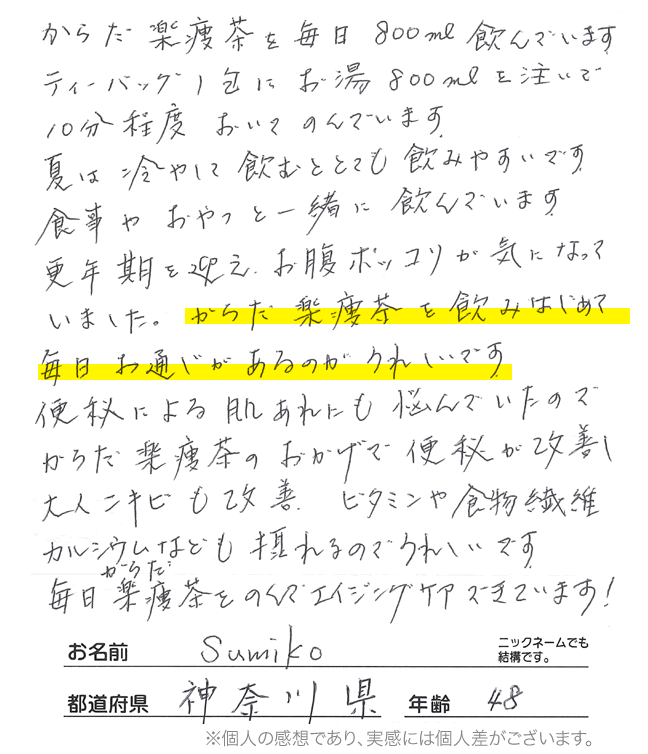 からだ楽痩茶を毎日800ml飲んでいます
ティーバッグ1包にお湯800mlを注いで
10分程度おいてのんでいます
夏は冷やして飲むととても飲みやすいです
食事やおやつと一緒に飲んでいます
更年期を迎え、お腹ポッコリが気になって
いました。からだ楽痩茶を飲みはじめて
毎日お通じがあるのがうれしいです
便秘による肌あれにも悩んでいたので
からだ楽痩茶のおかげで便秘が改善し
大人ニキビも改善、ビタミンや食物繊維
カルシウムなども摂れるのでうれしいです
毎日からだ楽痩茶をのんでエイジングケアできています!
お名前 Sumiko ニックネームでも
結構です。
都道府県 神奈川県 年齢 48
※個人の感想であり、実感には個人差がございます。